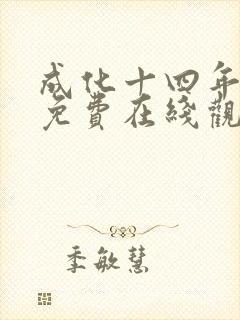 成化十四年
免費在綫觀
季敏慧